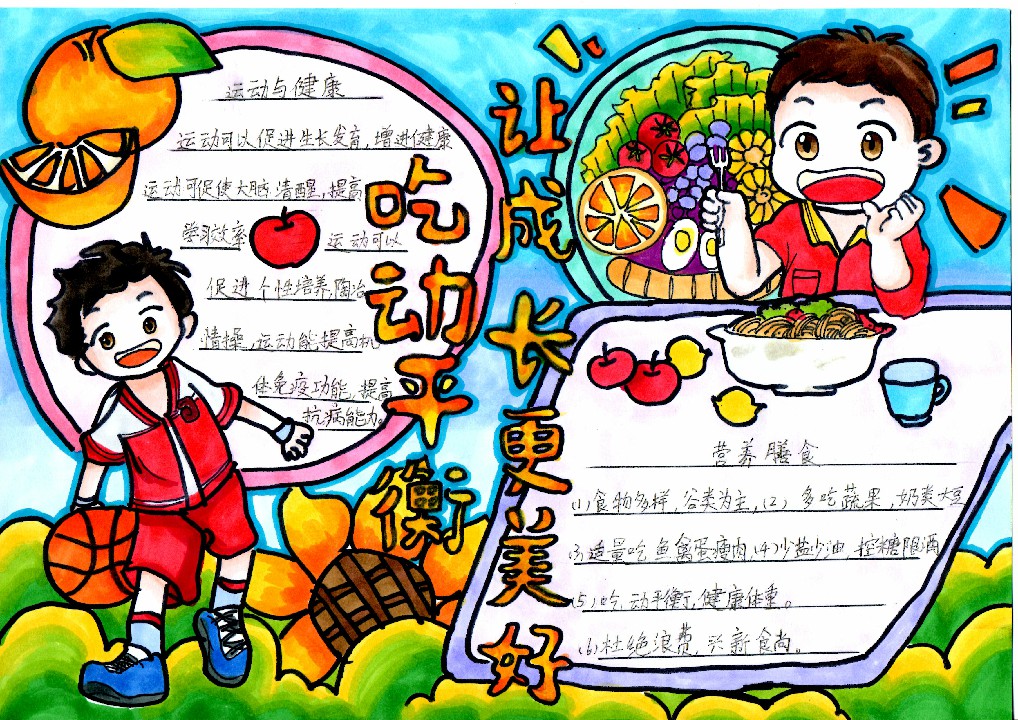 吃动平衡
让成长更美好
运动与健康
运动可以促进生长发育,增进健康
运动可促使大脑清醒,提高
学习效率 运动可以
促进个性培养,陶冶
情操,运动能提高机
体免疫功能,提高
抗病能力。
营养膳食
(1)食物多样,谷类为主,(2)多吃蔬果,奶类大豆
(3)适量吃鱼禽蛋瘦肉,(4)少盐少油,控糖限酒
(5)吃动平衡,健康体重。
(6)杜绝浪费,兴新食尚。